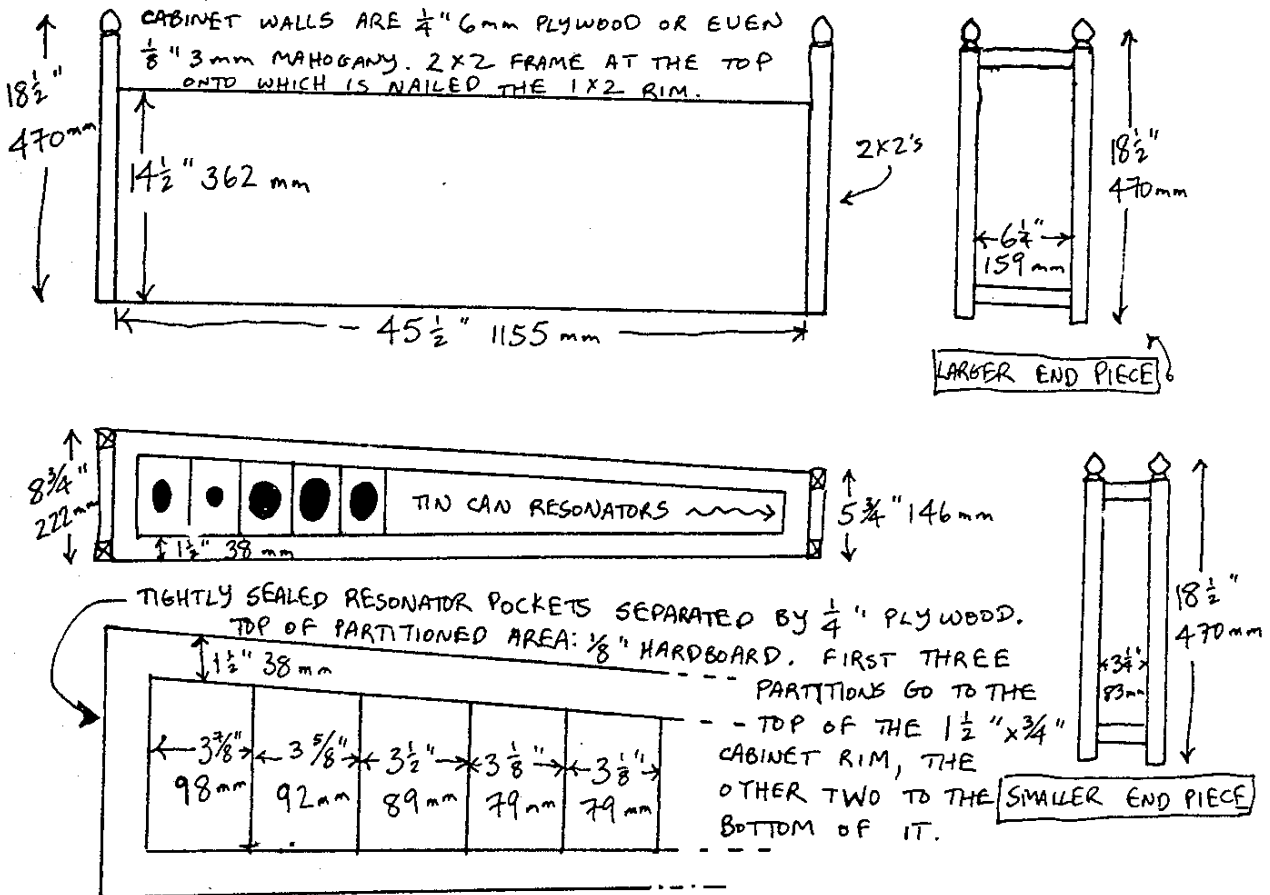 CABINET WALLS ARE 1/4" 6mm PLYWOOD OR EVEN
1/8" 3mm MAHOGANY. 2X2 FRAME AT THE TOP
ONTO WHICH IS NAILED THE 1X2 RIM.
18 1/2"
470mm
14 1/2" 362 mm
2X2's
45 1/2" 1155 mm
6 1/4"
159 mm
18 1/2"
470mm
LARGER END PIECE
8 3/4"
222mm
TIN CAN RESONATORS
1 1/2" 38 mm
5 3/4" 146mm
TIGHTLY SEALED RESONATOR POCKETS SEPARATED BY 1/4" PLYWOOD.
TOP OF PARTITIONED AREA: 1/8" HARDBOARD. FIRST THREE
PARTITIONS GO TO THE
TOP OF THE 1 1/2" x 3/4"
CABINET RIM, THE
OTHER TWO TO THE
BOTTOM OF IT.
1 1/2" 38mm
3 7/8" 3 5/8" 3 1/2" 3 1/8" 3 1/8"
98mm 92mm 89mm 79mm 79mm
18 1/2"
470mm
3 1/4"
83mm
SMALLER END PIECE